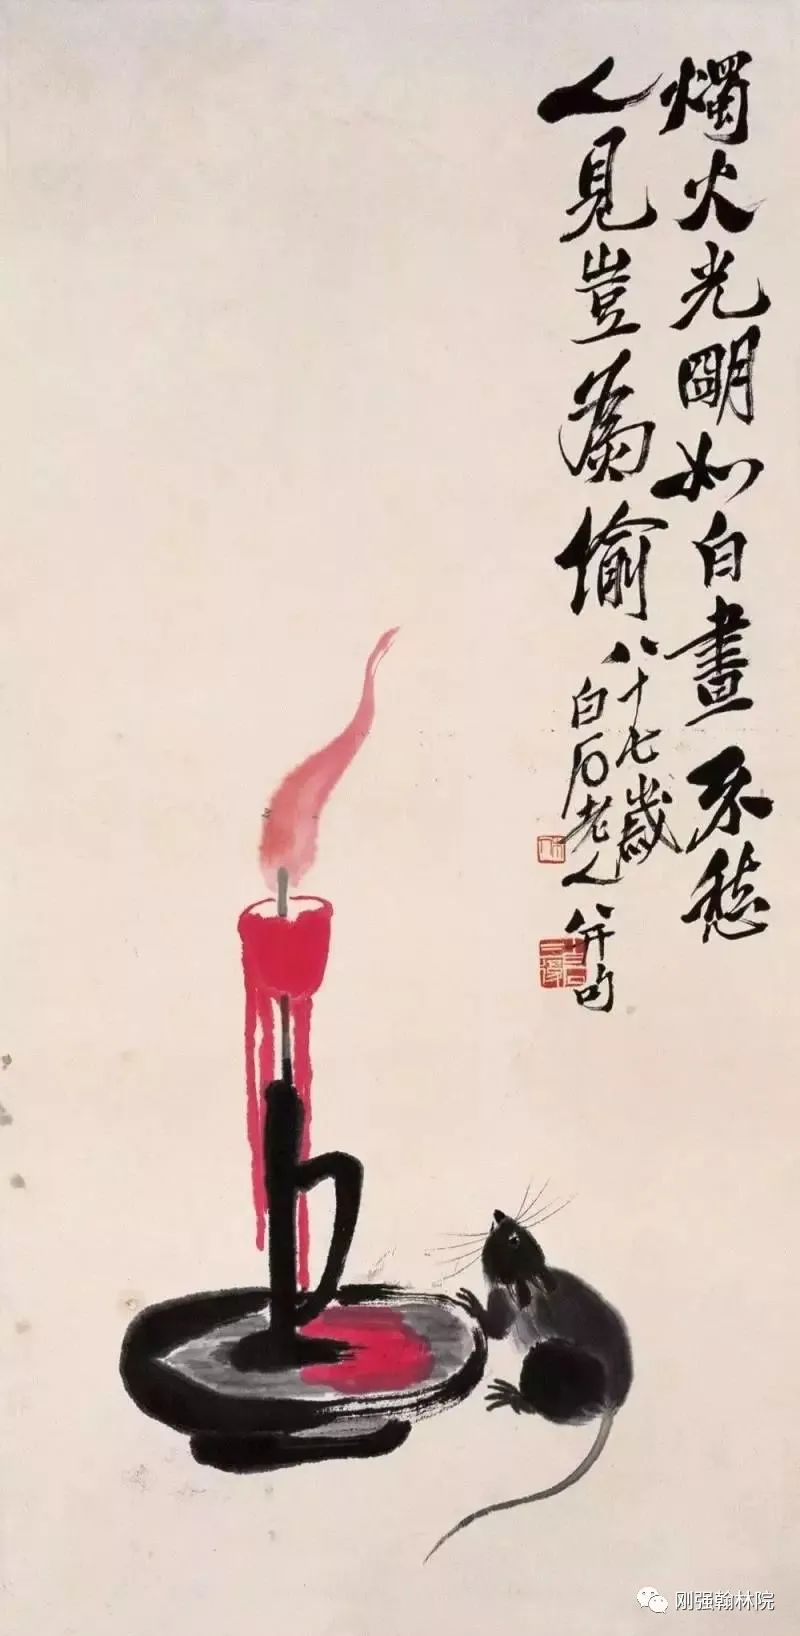 燭火光朙如白晝不愁
人見豈爲偷
八十七歲
白石老人并句
刚强翰林院